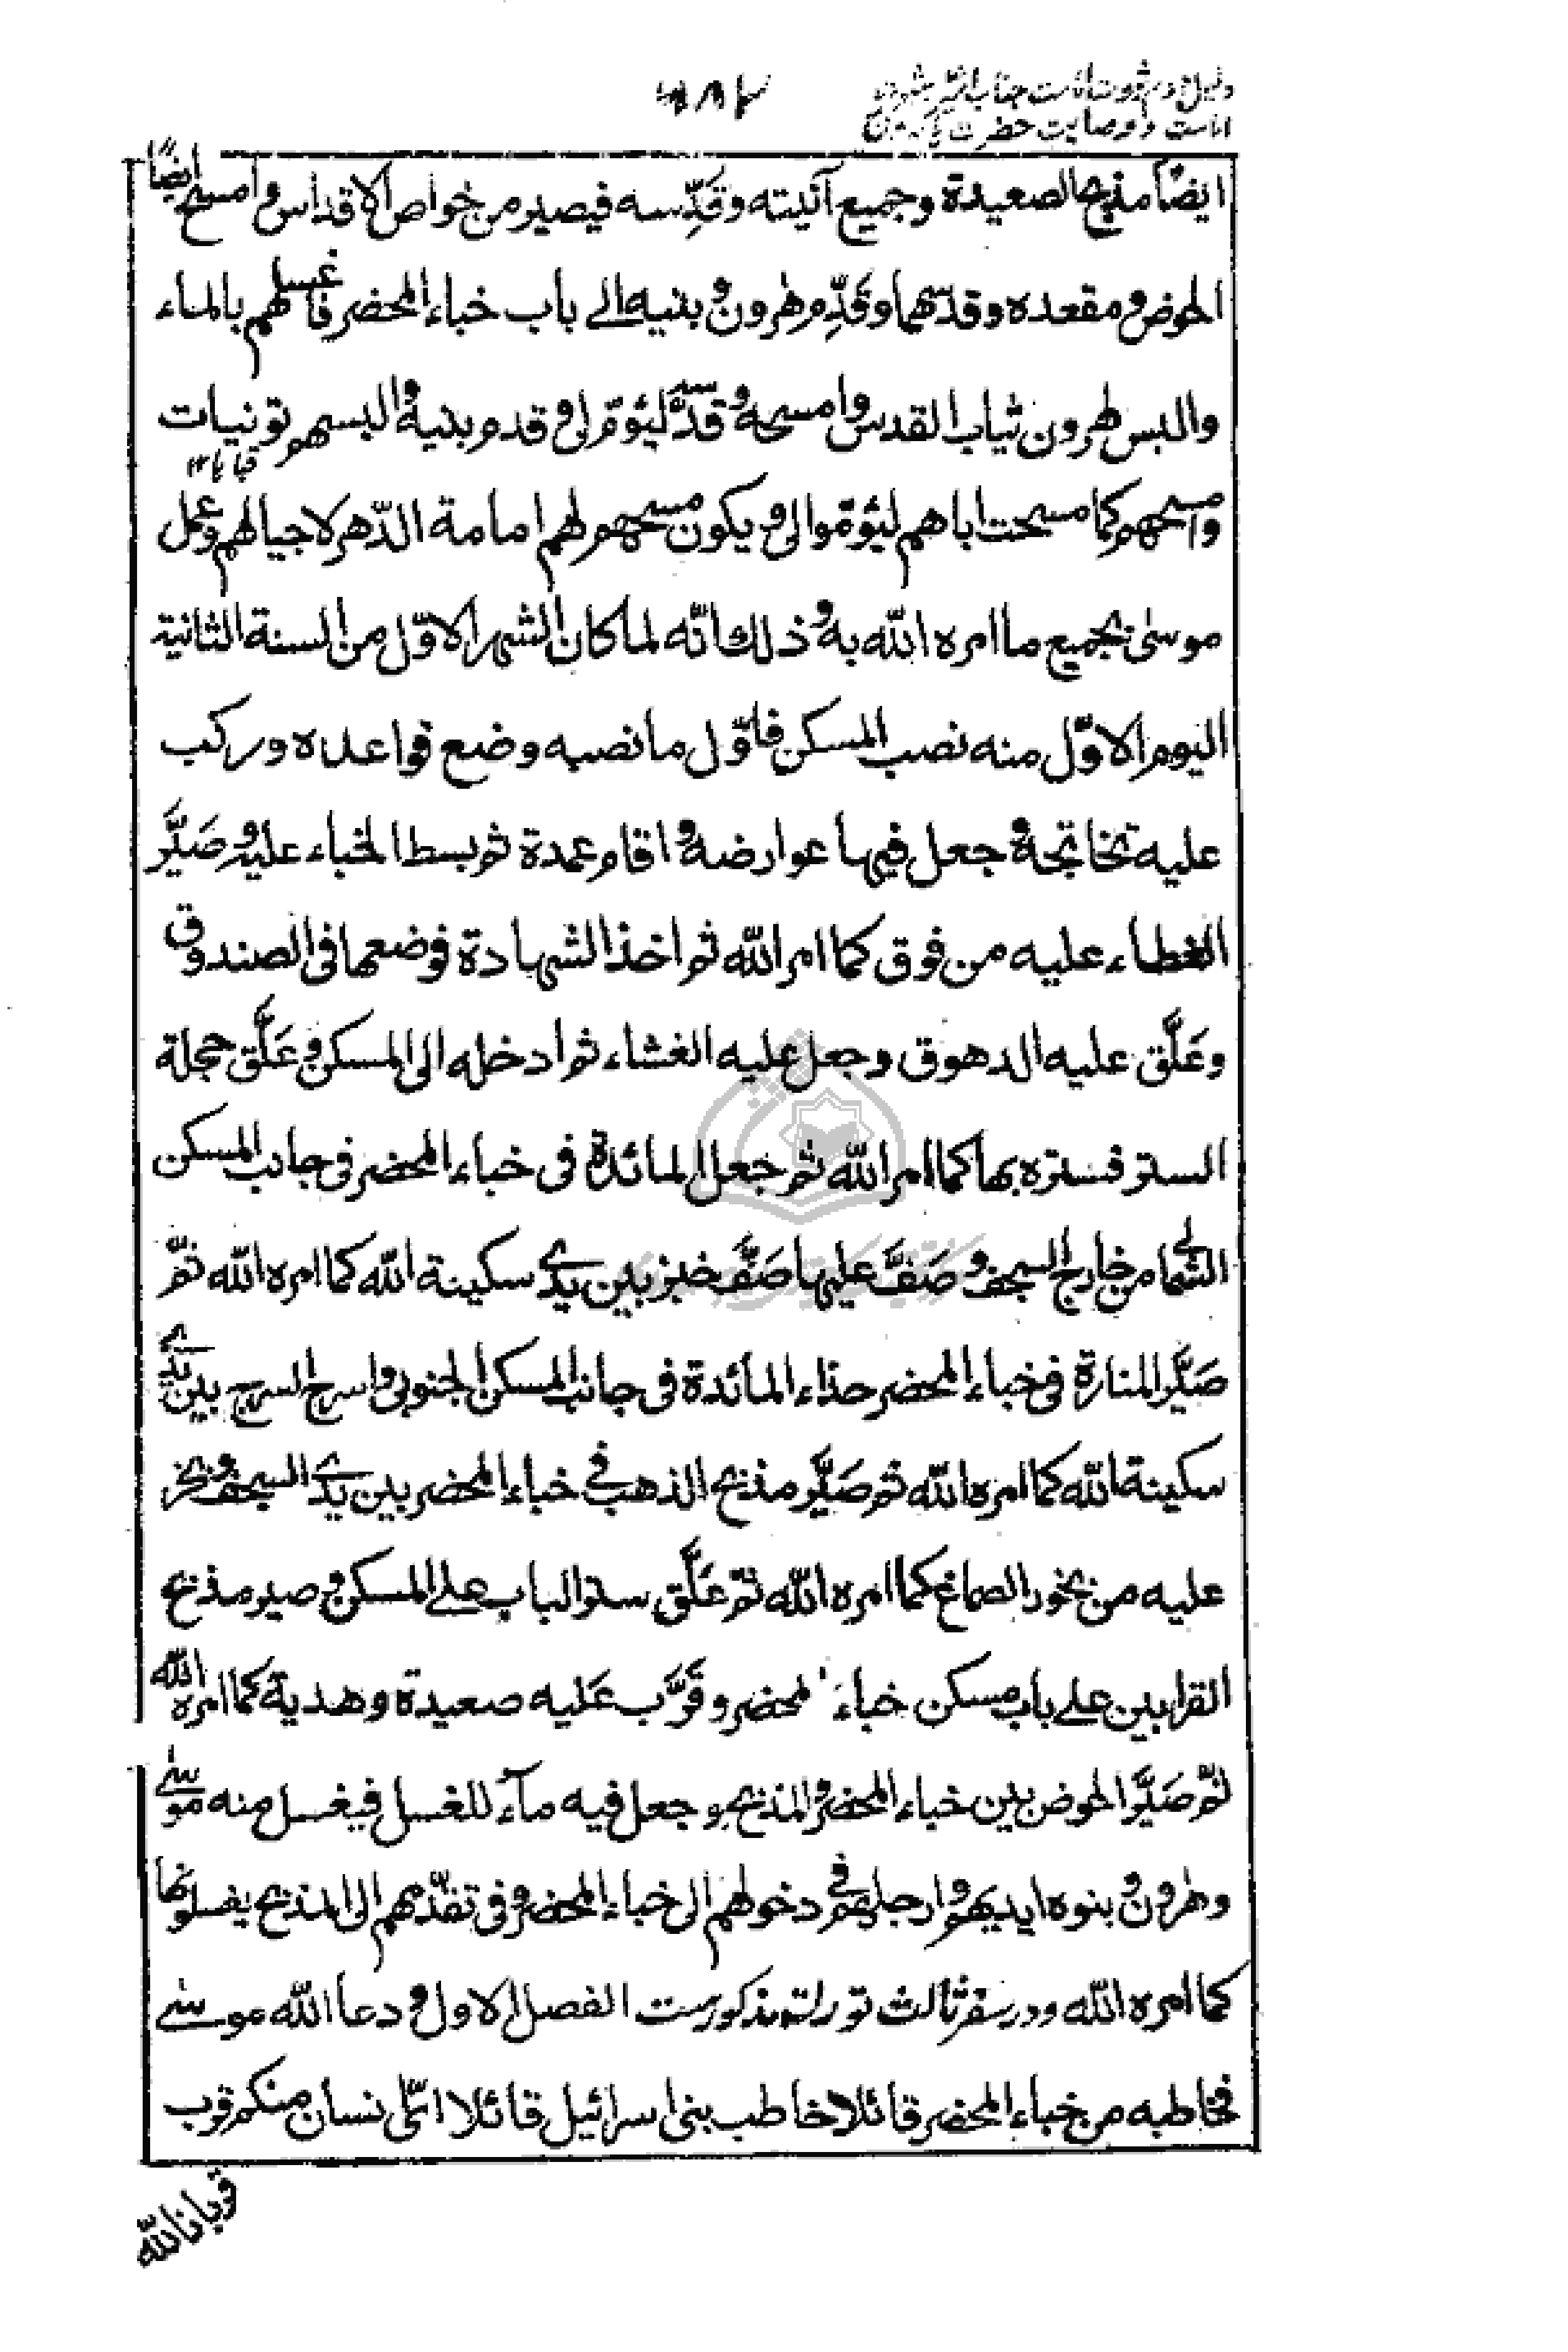 امامت و وصایت حضرت
ایضاً مذبح الصعیدة وجمیع آنیته وقَدِّسه فیصیر من خواص الاقداس وامسح ایضًا
الحوض ومقعده وقدّسهما وقَدِّم هٰرون وبنیه الی باب خباء المحضر فاغسلهم بالماء
والبس هٰرون ثیاب القدس وامسحه وقدّسه لیؤمّ لی وقدم بنیه والبسهم تونیات
قباها ١٢
وامسحهم کما مسحت اباهم لیؤمّوا لی ویکون مسحهم لهم امامة الدّهر لاجیالهم وعمل
موسٰی بجمیع ما امره الله به وذلك انّه لما کان الشهر الاوّل من السنة الثانیة
الیوم الاوّل منه نصب المسکن فاوّل ما نصبه وضع قواعده ورکب
علیه تخاتجه وجعل فیها عوارضه واقام عمدة ثم بسط الخباء علیه وصَیَّر
الغطاء علیه من فوق کما امر الله ثم اخذ الشهادة فوضعها فی الصندوق
وعَلَّق علیه الدهوق وجعل علیه الغشاء ثم ادخله الی المسکن وعَلَّق حجلة
الستر فستره بها کما امر الله ثم جعل المائدة فی خباء المحضر فی جانب المسکن
الشمالی من خارج السجف وصَفَّ علیها صَفَّ خبز بین یدی سکینة الله کما امره الله ثمّ
صَیَّر المنارة فی خباء المحضر حذاء المائدة فی جانب المسکن الجنوبی واسرج السرج بین یدی
سکینة الله کما امره الله ثم صَیَّر مذبح الذهب فی خباء المحضر بین یدی السجف وبخر
علیه من بخور الصماغ کما امره الله ثمّ عَلَّق ستر الباب علی المسکن وصیر مذبح
القرابین علی باب مسکن خباء المحضر وقَرَّب عَلیه صعیدة وهدیة کما امره الله
ثمّ صَیَّر الحوض بین خباء المحضر والمذبح وجعل فیه ماءً للغسل فیغسل منه موسٰی
وهٰرون وبنوه ایدیهم وارجلهم فی دخولهم الی خباء المحضر وفی تقدّمهم الی المذبح یغسلونها
کما امره الله ودر سفر ثالث تورات مذکورست الفصل الاول ودعا الله موسٰی
فخاطبه من خباء المحضر قائلا خاطب بنی اسرائیل قائلا ایّ انسان منکم قرب
قربانا لله